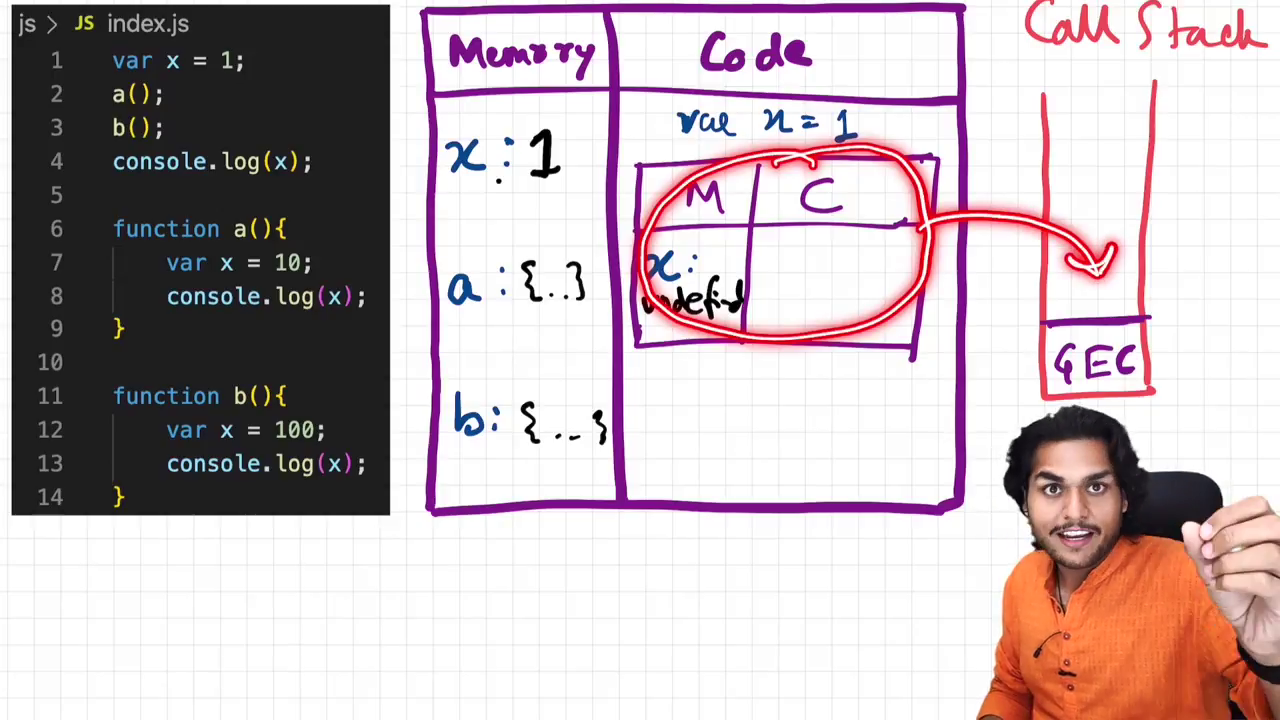 js > JS index.js
1 var x = 1;
2 a();
3 b();
4 console.log(x);
5
6 function a(){
7 var x = 10;
8 console.log(x);
9 }
10
11 function b(){
12 var x = 100;
13 console.log(x);
14 }
Memory
Code
x : 1
a : {..}
b : {...}
var x = 1
M
C
x :
undefind
Call Stack
GEC